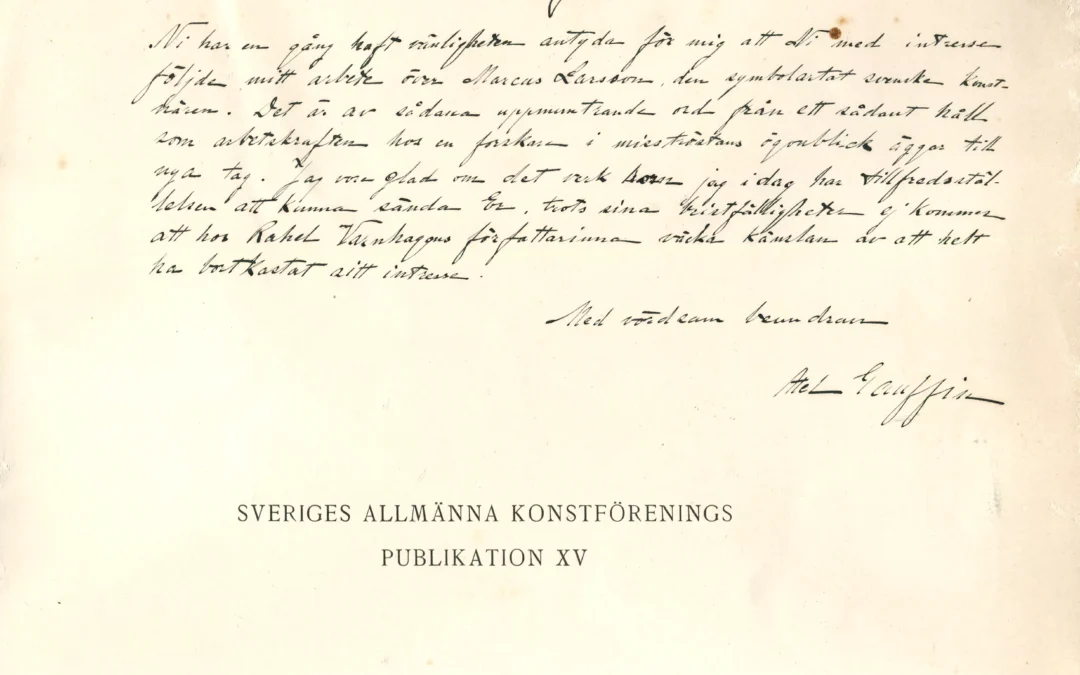 Ni har en gång haft vänligheten antyda för mig att Ni med intresse
följde mitt arbete över Marcus Larsson, den symbolartat svenske konst-
nären. Det är av sådana uppmuntrande ord från ett sådant håll
som arbetskraften hos en forskare i misströstans ögonblick äggas till
nya tag. Jag vore glad om det verk som jag idag har tillfredsstäl-
lelsen att kunna sända Er, trots sina bristfälligheter ej kommer
att hos Rahel Varnhagens författarinna väcka känslan av att helt
ha bortkastat sitt intresse.
Med vördsam beundran
Axel Gauffin
SVERIGES ALLMÄNNA KONSTFÖRENINGS
PUBLIKATION XV